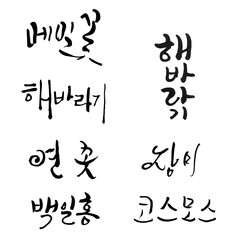 메밀꽃
해바라기
연 꽃
백일홍
해
바
라기
장미
코스모스